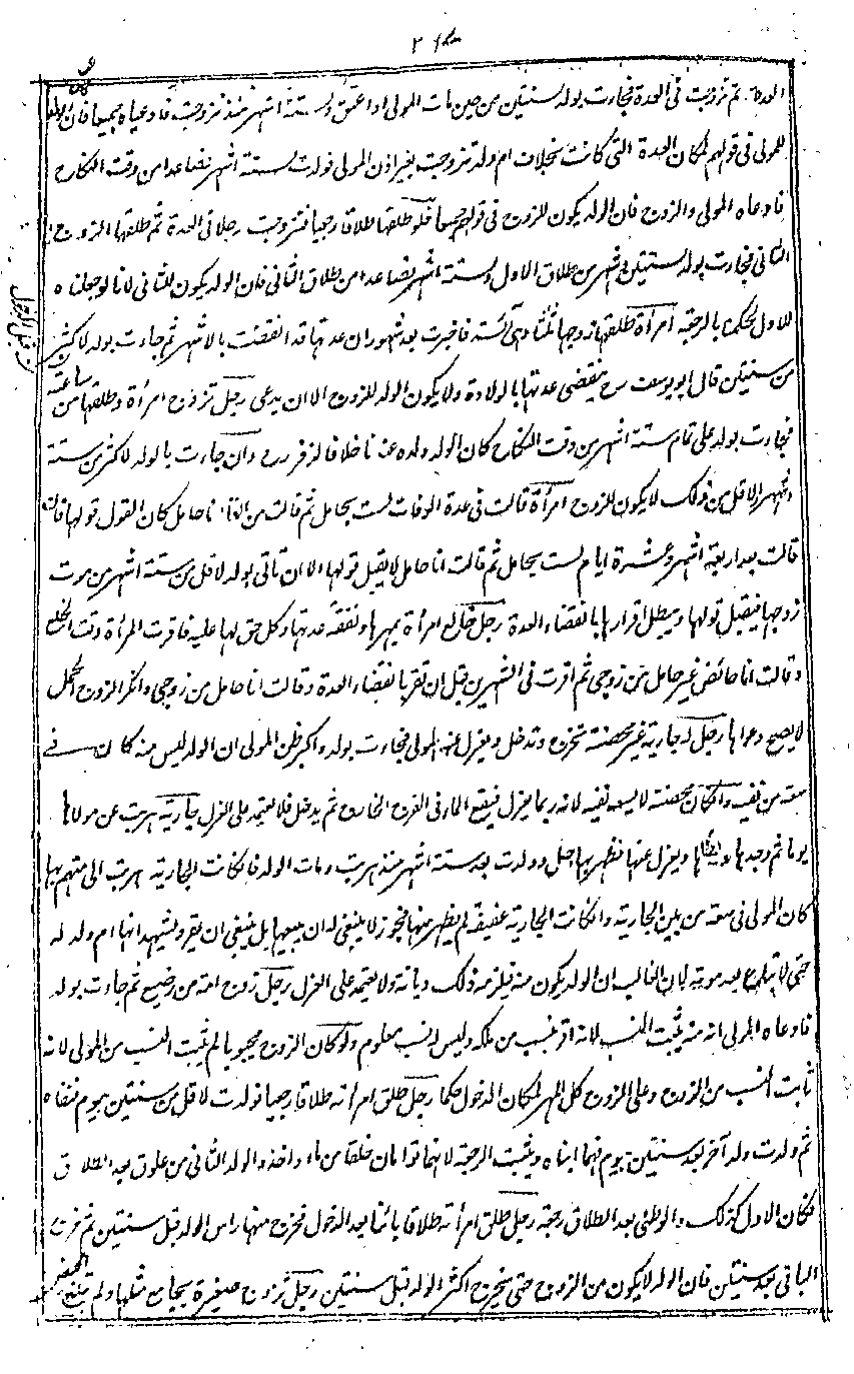 العدة ثم تزوجت فى العدة فجاءت بولد لسنتين من حين مات المولى او اعتق ولستة اشهر منذ تزوجت فادعياه جميعا فان الولد
للمولى فى قولهم لمكان العدة التى كانت بخلاف ام ولد تزوجت بغير اذن المولى فولدت لستة اشهر فصاعدا من وقت النكاح
فادعاه المولى والزوج فان الولد يكون للزوج فى قولهم جميعا فلو طلقها طلاقا رجعيا فتزوجت رجلا فى العدة ثم طلقها الزوج
الثانى فجاءت بولد لسنتين وشهر من طلاق الاول ولستة اشهر فصاعدا من طلاق الثانى فان الولد يكون للثانى لانا لو جعلناه
للاول لحكمنا بالرجعة امرأة طلقها زوجها ثلثا وهى آئسة فاخبرت بعد شهور ان عدتها قد انقضت بالاشهر ثم جاءت بولد لاكثر
من سنتين قال ابو يوسف رح ينقضى عدتها بالولادة ولا يكون الولد للزوج الا ان يدعى رجل تزوج امرأة وطلقها من ساعته
فجاءت بولد على تمام ستة اشهر من وقت النكاح كان الولد ولده عندنا خلافا لزفر رح وان جاءت بالولد لاكثر من ستة
اشهر او لاقل من ذلك لا يكون للزوج امرأة قالت فى عدة الوفات لست بحامل ثم قالت من الغد انا حامل كان القول قولها فان
قالت بعد اربعة اشهر وعشرة ايام لست بحامل ثم قالت انا حامل لا يقبل قولها الا ان تاتى بولد لاقل من ستة اشهر من موت
زوجها فيقبل قولها ويبطل اقرارها بانقضاء العدة رجل خالع امرأة بمهرها ونفقة عدتها وكل حق لها عليه فاقرت المرأة وقت الخلع
وقالت انا حائض غير حامل من زوجى ثم اقرت فى الشهرين قبل ان تقر بانقضاء العدة وقالت انا حامل من زوجى وانكر الزوج الحمل
لا يصح دعواها رجل له جارية غير محصنة تخرج وتدخل ويعزل عنها المولى فجاءت بولد واكبر ظن المولى ان الولد ليس منه كان فى
سعة من نفيه وان كان محصنة لا يسعه نفيه لانه ربما يعزل فيقع الماء فى الفرج الخارج ثم يدخل فلا يعتمد على العزل جارية هربت عن مولاها
يوما ثم وجدها ويعزل عنها فظهر بها حبل وولدت بعد ستة اشهر منذ هربت ومات الولد فان كانت الجارية هربت الى متهم بها
كان المولى فى سعة من بيع الجارية وان كانت الجارية عفيفة لم يظهر منها فجور لا ينبغى له ان يبيعها بل ينبغى ان يقر ويشهد انها ام ولد له
حتى لا تباع بعد موته لان الغالب ان الولد يكون منه فيلزمه ذلك ديانة ولا يعتمد على العزل رجل زوج امته من رضيع ثم جاءت بولد
فادعاه المولى انه منه يثبت النسب لانه اقر بنسب من ملكه وليس له نسب معلوم ولو كان الزوج مجبوبا لم يثبت النسب من المولى لانه
ثابت النسب من الزوج وعلى الزوج كل المهر لمكان الدخول حكما رجل طلق امرأته طلاقا رجعيا فولدت لاقل من سنتين بيوم فنفاه
ثم ولدت ولدا آخر بعد سنتين بيوم فهما ابناه ويثبت الرجعة لانهما توامان خلقا من ماء واحد والولد الثانى من علوق بعد الطلاق
فكان الاول كذلك والوطئ بعد الطلاق رجعة رجل طلق امرأته طلاقا بائنا بعد الدخول فخرج منها راس الولد قبل سنتين ثم خرج
الباقى بعد سنتين فان الولد لا يكون من الزوج حتى يخرج اكثر الولد قبل سنتين رجل تزوج صغيرة يجامع مثلها ولم